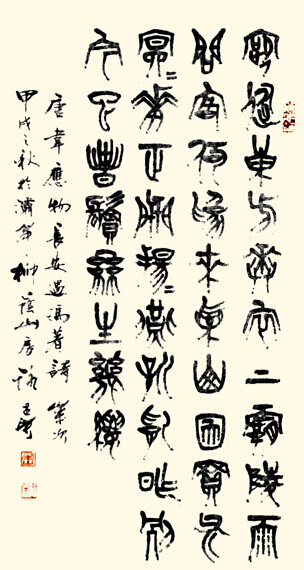 客從東方來衣上霸陵雨
問客何為來采山因買斧
冥〻華正開颺〻燕新乳昨別
今已春鬢絲生幾縷
唐韋應物長安遇馮著詩
甲戌之秋於濟南柳蔭山房